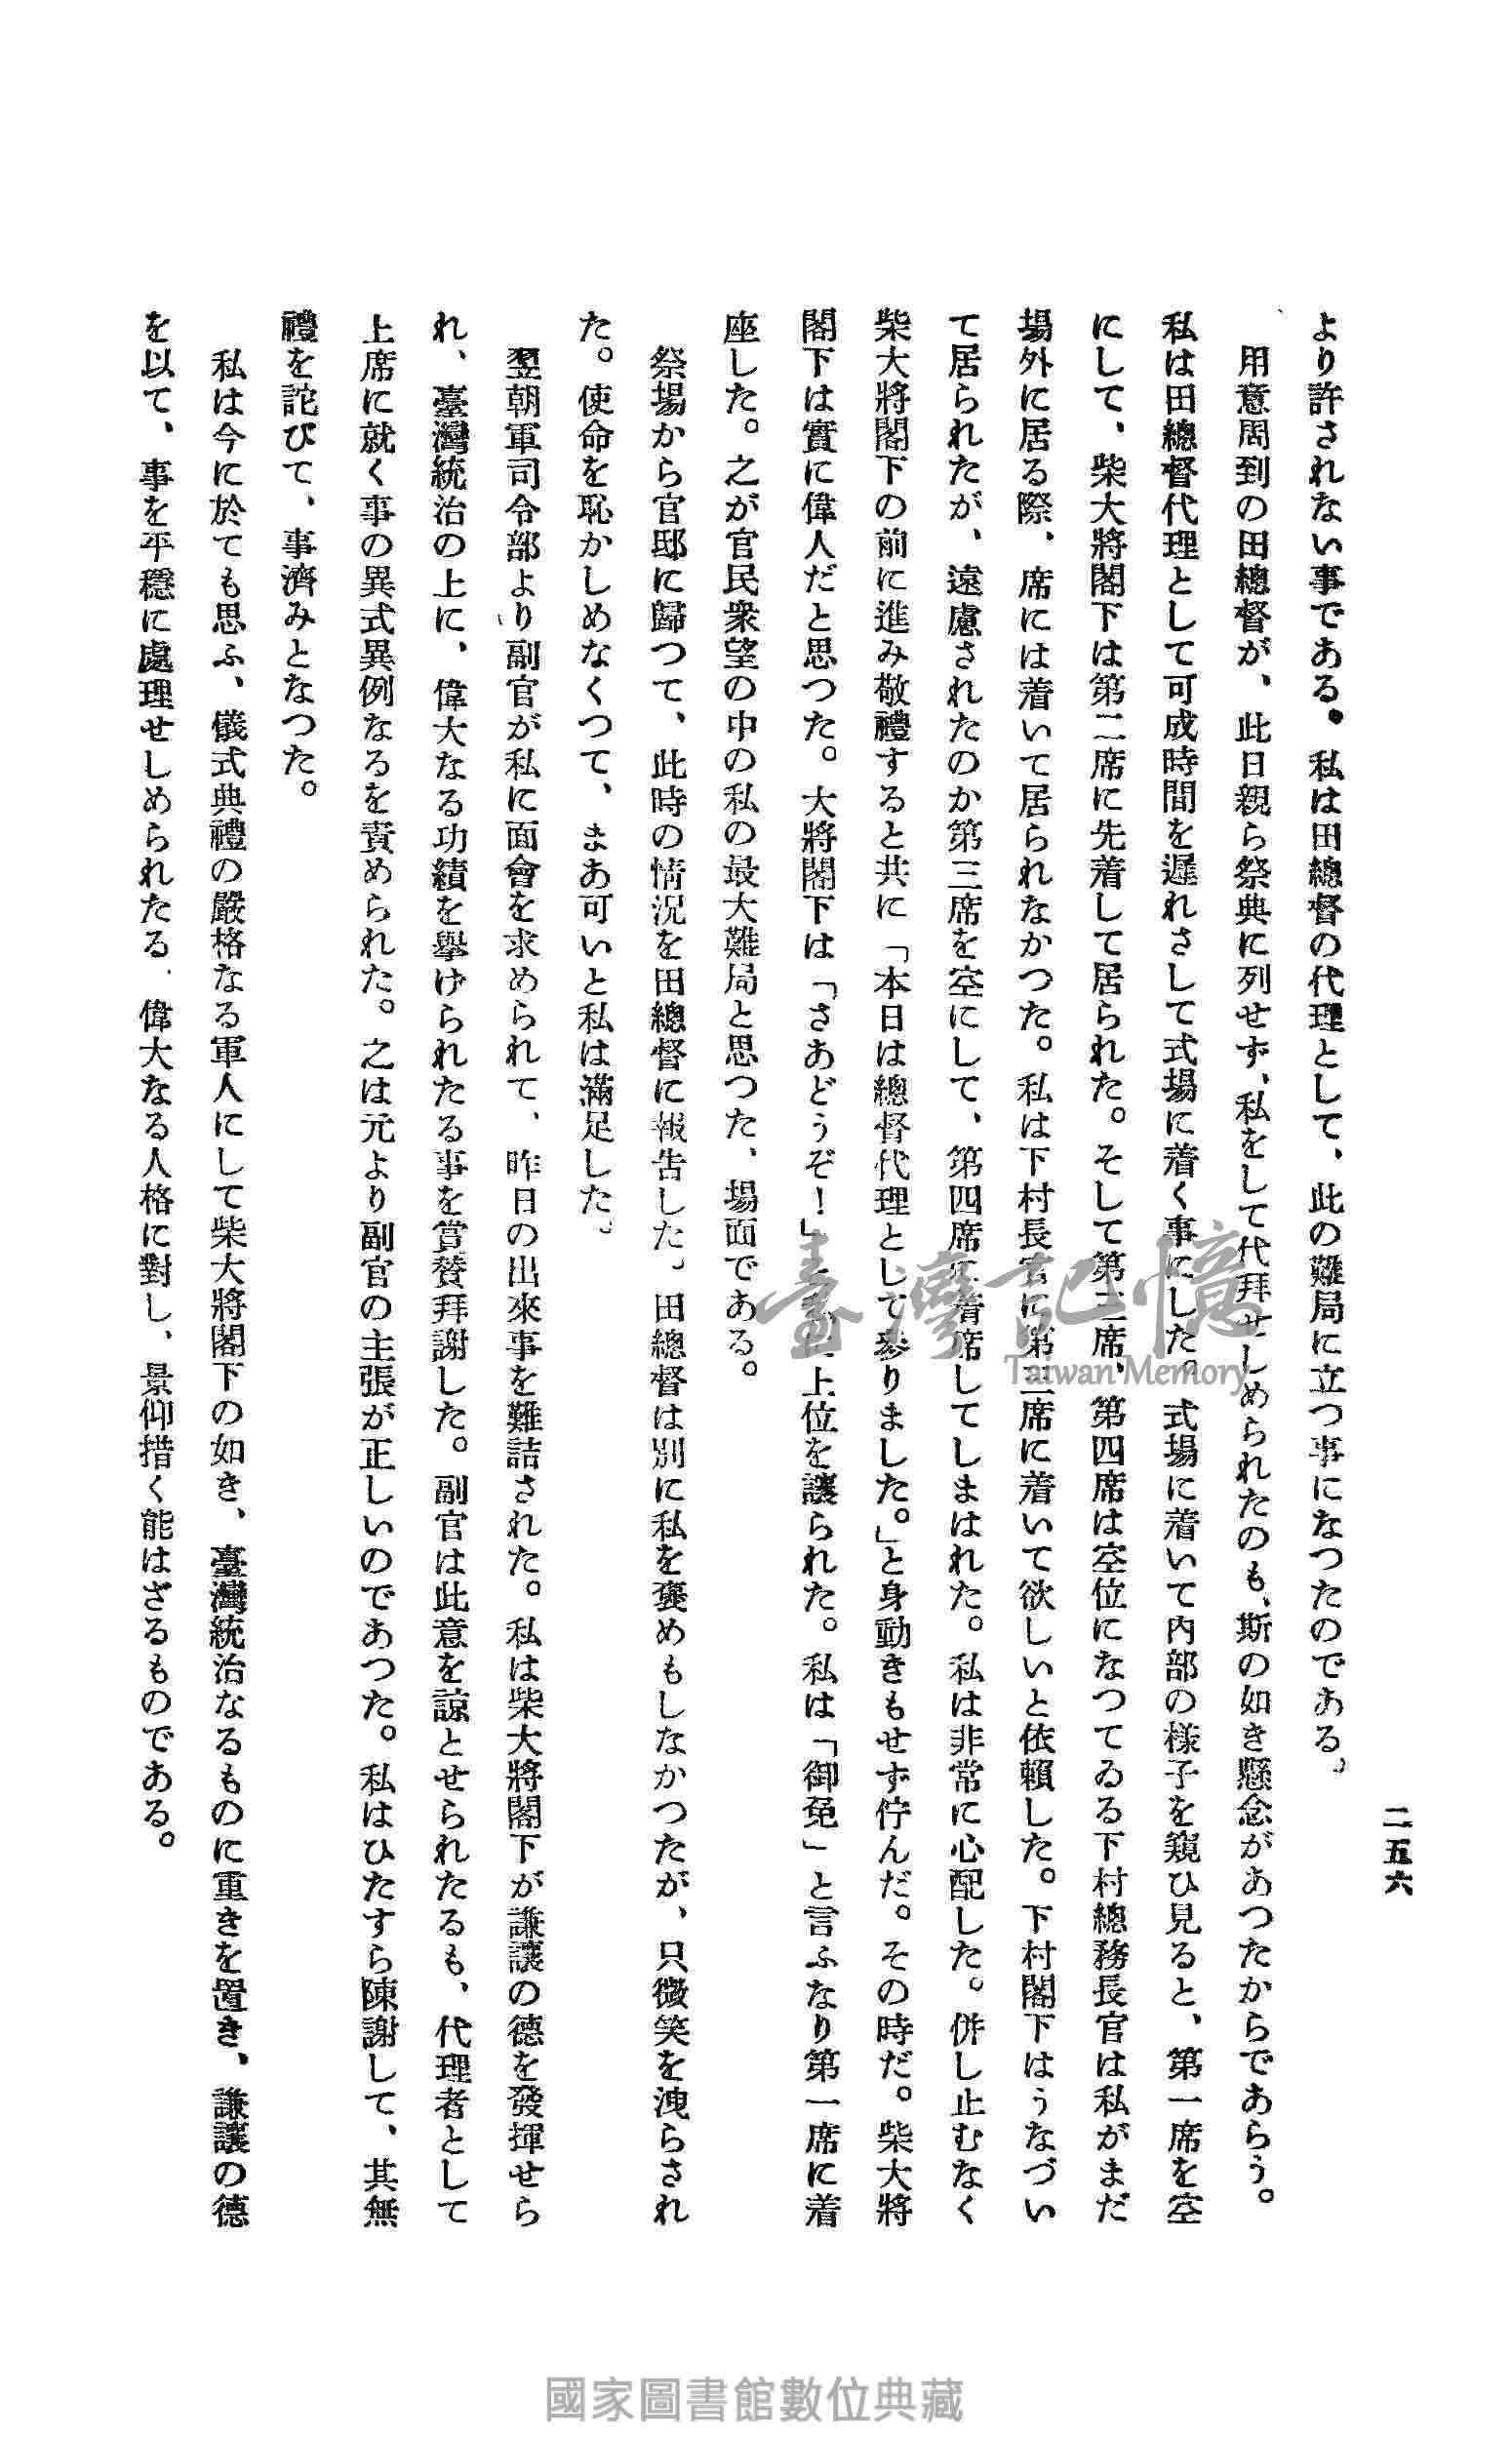 二五六
より許されない事である。私は田總督の代理として、此の難局に立つ事になつたのである。
用意周到の田總督が、此日親ら祭典に列せず、私をして代拜せしめられたのも、斯の如き懸念があつたからであらう。
私は田總督代理として可成時間を遲れさして式場に着く事にした。式場に着いて内部の樣子を窺ひ見ると、第一席を空
にして、柴大將閣下は第二席に先着して居られた。そして第三席、第四席は空位になつてゐる下村總務長官は私がまだ
場外に居る際、席には着いて居られなかつた。私は下村長官に第三席に着いて欲しいと依賴した。下村閣下はうなづい
て居られたが、遠慮されたのか第三席を空にして、第四席に着席してしまはれた。私は非常に心配した。併し止むなく
柴大將閣下の前に進み敬禮すると共に「本日は總督代理として參りました。」と身動きもせず佇んだ。その時だ。柴大將
閣下は實に偉人だと思つた。大將閣下は「さあどうぞ！」と 上位を讓られた。私は「御免」と言ふなり第一席に着
座した。之が官民衆望の中の私の最大難局と思つた、場面である。
祭場から官邸に歸つて、此時の情況を田總督に報告した。田總督は別に私を褒めもしなかつたが、只微笑を洩らされ
た。使命を恥かしめなくつて、まあ可いと私は滿足した。
翌朝軍司令部より副官が私に面會を求められて、昨日の出來事を難詰された。私は柴大將閣下が謙讓の德を發揮せら
れ、臺灣統治の上に、偉大なる功績を擧けられたる事を賞賛拜謝した。副官は此意を諒とせられたるも、代理者として
上席に就く事の異式異例なるを責められた。之は元より副官の主張が正しいのであつた。私はひたすら陳謝して、其無
禮を詫びて、事濟みとなつた。
私は今に於ても思ふ、儀式典禮の嚴格なる軍人にして柴大將閣下の如き、臺灣統治なるものに重きを置き、謙讓の德
を以て、事を平穩に處理せしめられたる、偉大なる人格に對し、景仰措く能はざるものである。
臺灣記憶
Taiwan Memory
國家圖書館數位典藏